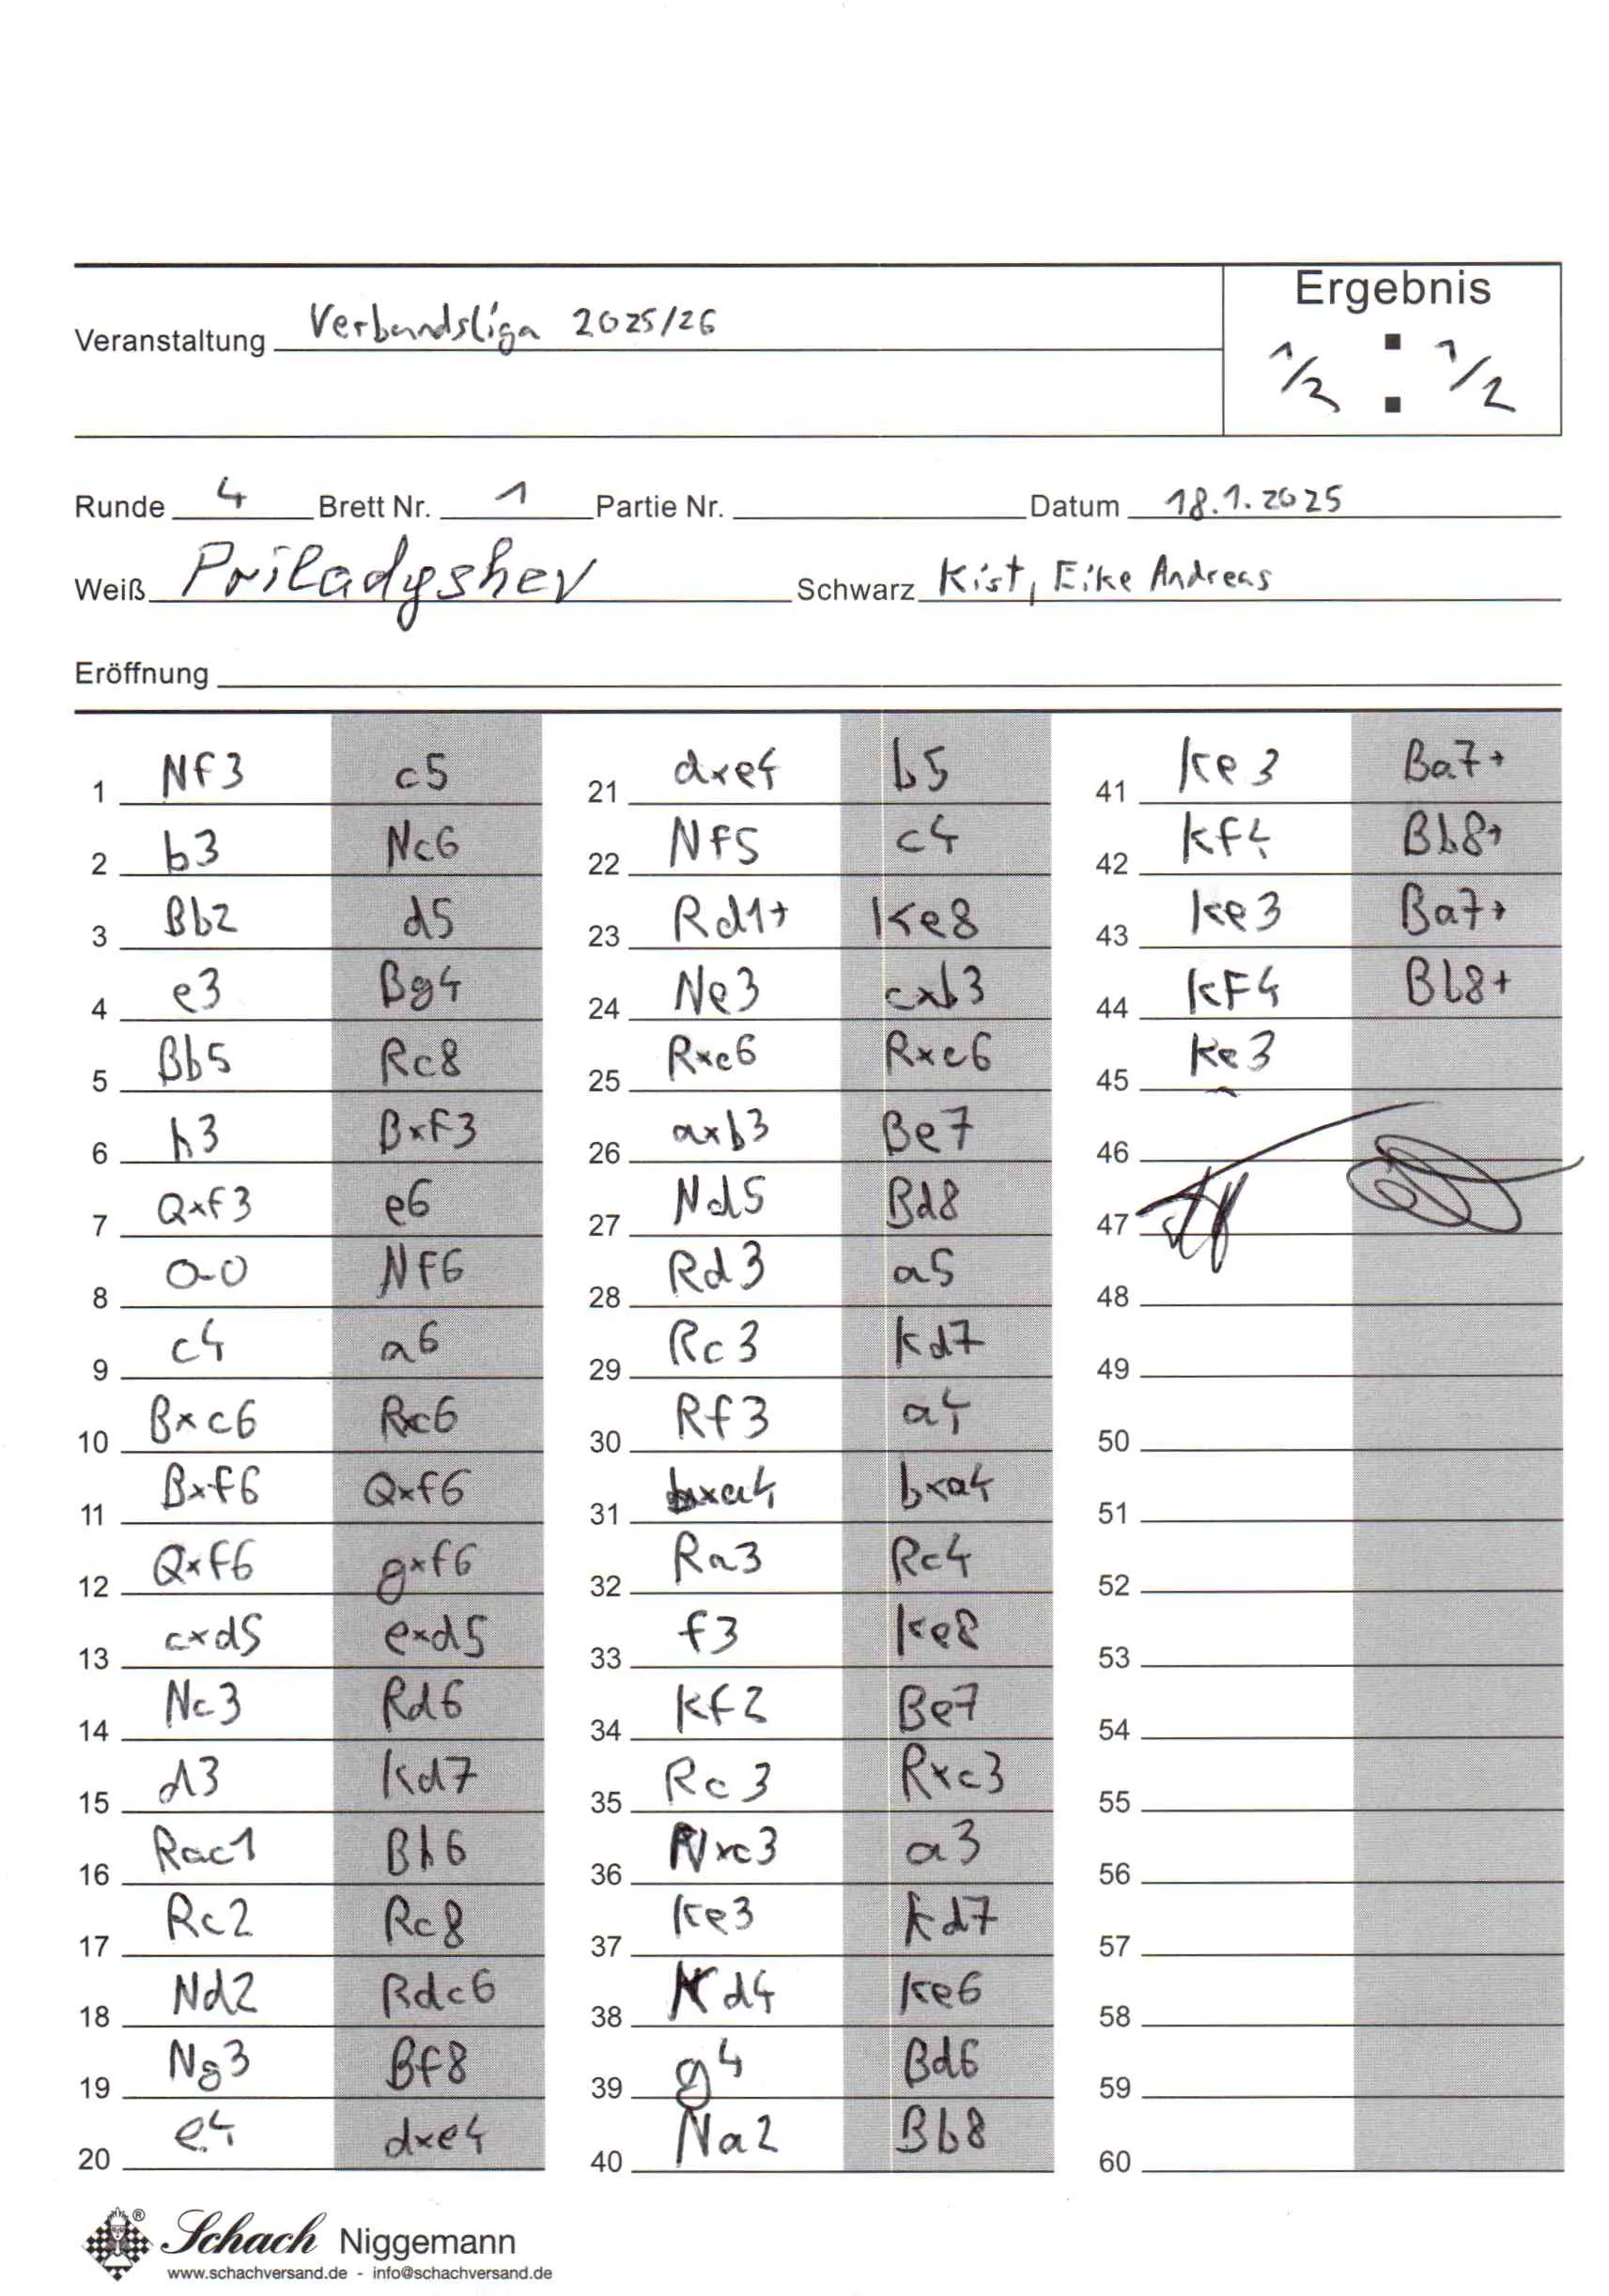 Ergebnis
Veranstaltung Verbandsliga 2025/26
1/2 : 1/2
Runde 4 Brett Nr. 1 Partie Nr. Datum 18.1.2025
Weiß Priladyshev Schwarz Kist, Eike Andreas
Eröffnung
1 Nf3 c5
2 b3 Nc6
3 Bb2 d5
4 e3 Bg4
5 Bb5 Rc8
6 h3 Bxf3
7 Qxf3 e6
8 0-0 Nf6
9 c4 a6
10 Bxc6 Rxc6
11 Bxf6 Qxf6
12 Qxf6 gxf6
13 cxd5 exd5
14 Nc3 Rd6
15 d3 Kd7
16 Rac1 Bh6
17 Rc2 Rc8
18 Nd2 Rdc6
19 Ng3 Bf8
20 e4 dxe4
21 dxe4 b5
22 Nf5 c4
23 Rd1+ Ke8
24 Ne3 cxb3
25 Rxc6 Rxc6
26 axb3 Be7
27 Nd5 Bd8
28 Rd3 a5
29 Rc3 Kd7
30 Rf3 a4
31 bxa4 bxa4
32 Ra3 Rc4
33 f3 Ke8
34 Kf2 Be7
35 Rc3 Rxc3
36 Nxc3 a3
37 Ke3 Kd7
38 Kd4 Ke6
39 g4 Bd6
40 Na2 Bb8
41 Ke3 Ba7+
42 Kf4 Bb8+
43 Ke3 Ba7+
44 Kf4 Bb8+
45 Ke3
46
47
48
49
50
51
52
53
54
55
56
57
58
59
60
Schach Niggemann
www.schachversand.de - info@schachversand.de